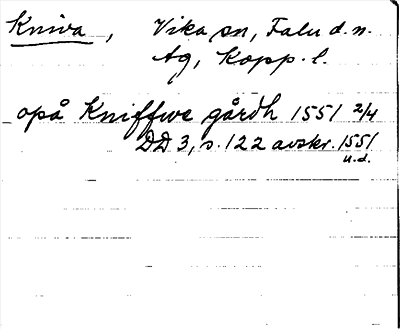 Kniva, Vika sn, Falu d. n.
Ag, Kopp. l.
opå Kniffwe gårdh 1551 2/4
DD 3, s. 122 avskr. 1551
u.d.